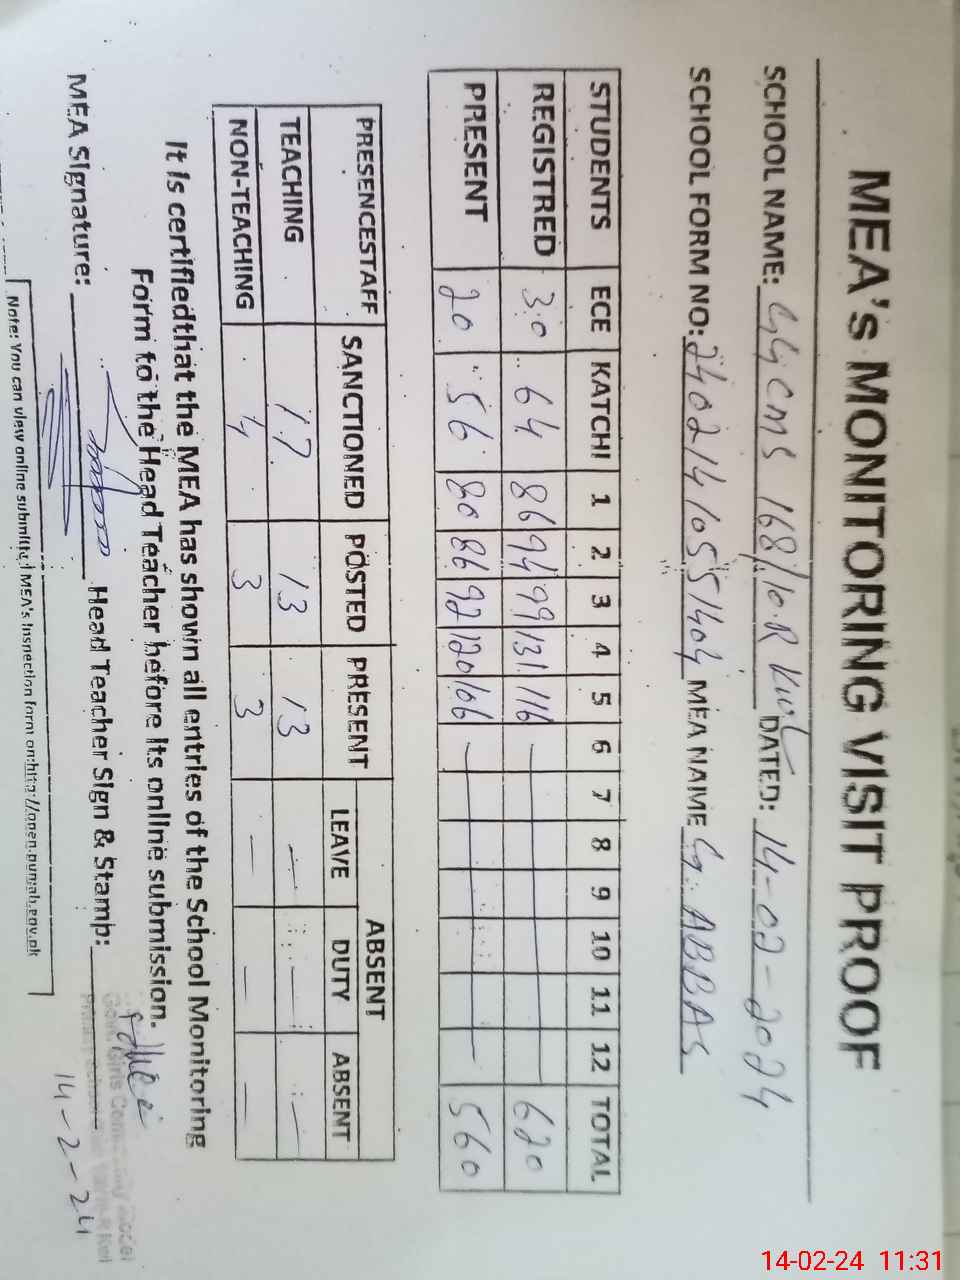 MEA's MONITORING VISIT PROOF
SCHOOL NAME: GGCMS 168/10.R Kwl DATED: 14-02-2024
SCHOOL FORM NO: 24021410551404 MEA NAME G. ABBAS
STUDENTS ECE KATCHI 1 2 3 4 5 6 7 8 9 10 11 12 TOTAL
REGISTRED 30 64 86 94 99 131 116 620
PRESENT 20 56 80 86 92 120 106 560
ABSENT
PRESENCESTAFF SANCTIONED POSTED PRESENT LEAVE DUTY ABSENT
TEACHING 17 13 13 - - -
NON-TEACHING 4 3 3 - - -
It is certifiedthat the MEA has shown all entries of the School Monitoring
Form to the Head Teacher before its online submission.
MEA Signature: Head Teacher Sign & Stamp:
Govt. Girls Community Model
14-2-24
Note: You can view online submitted MEA's Inspection form on:http://open.punjab.gov.pk
14-02-24 11:31